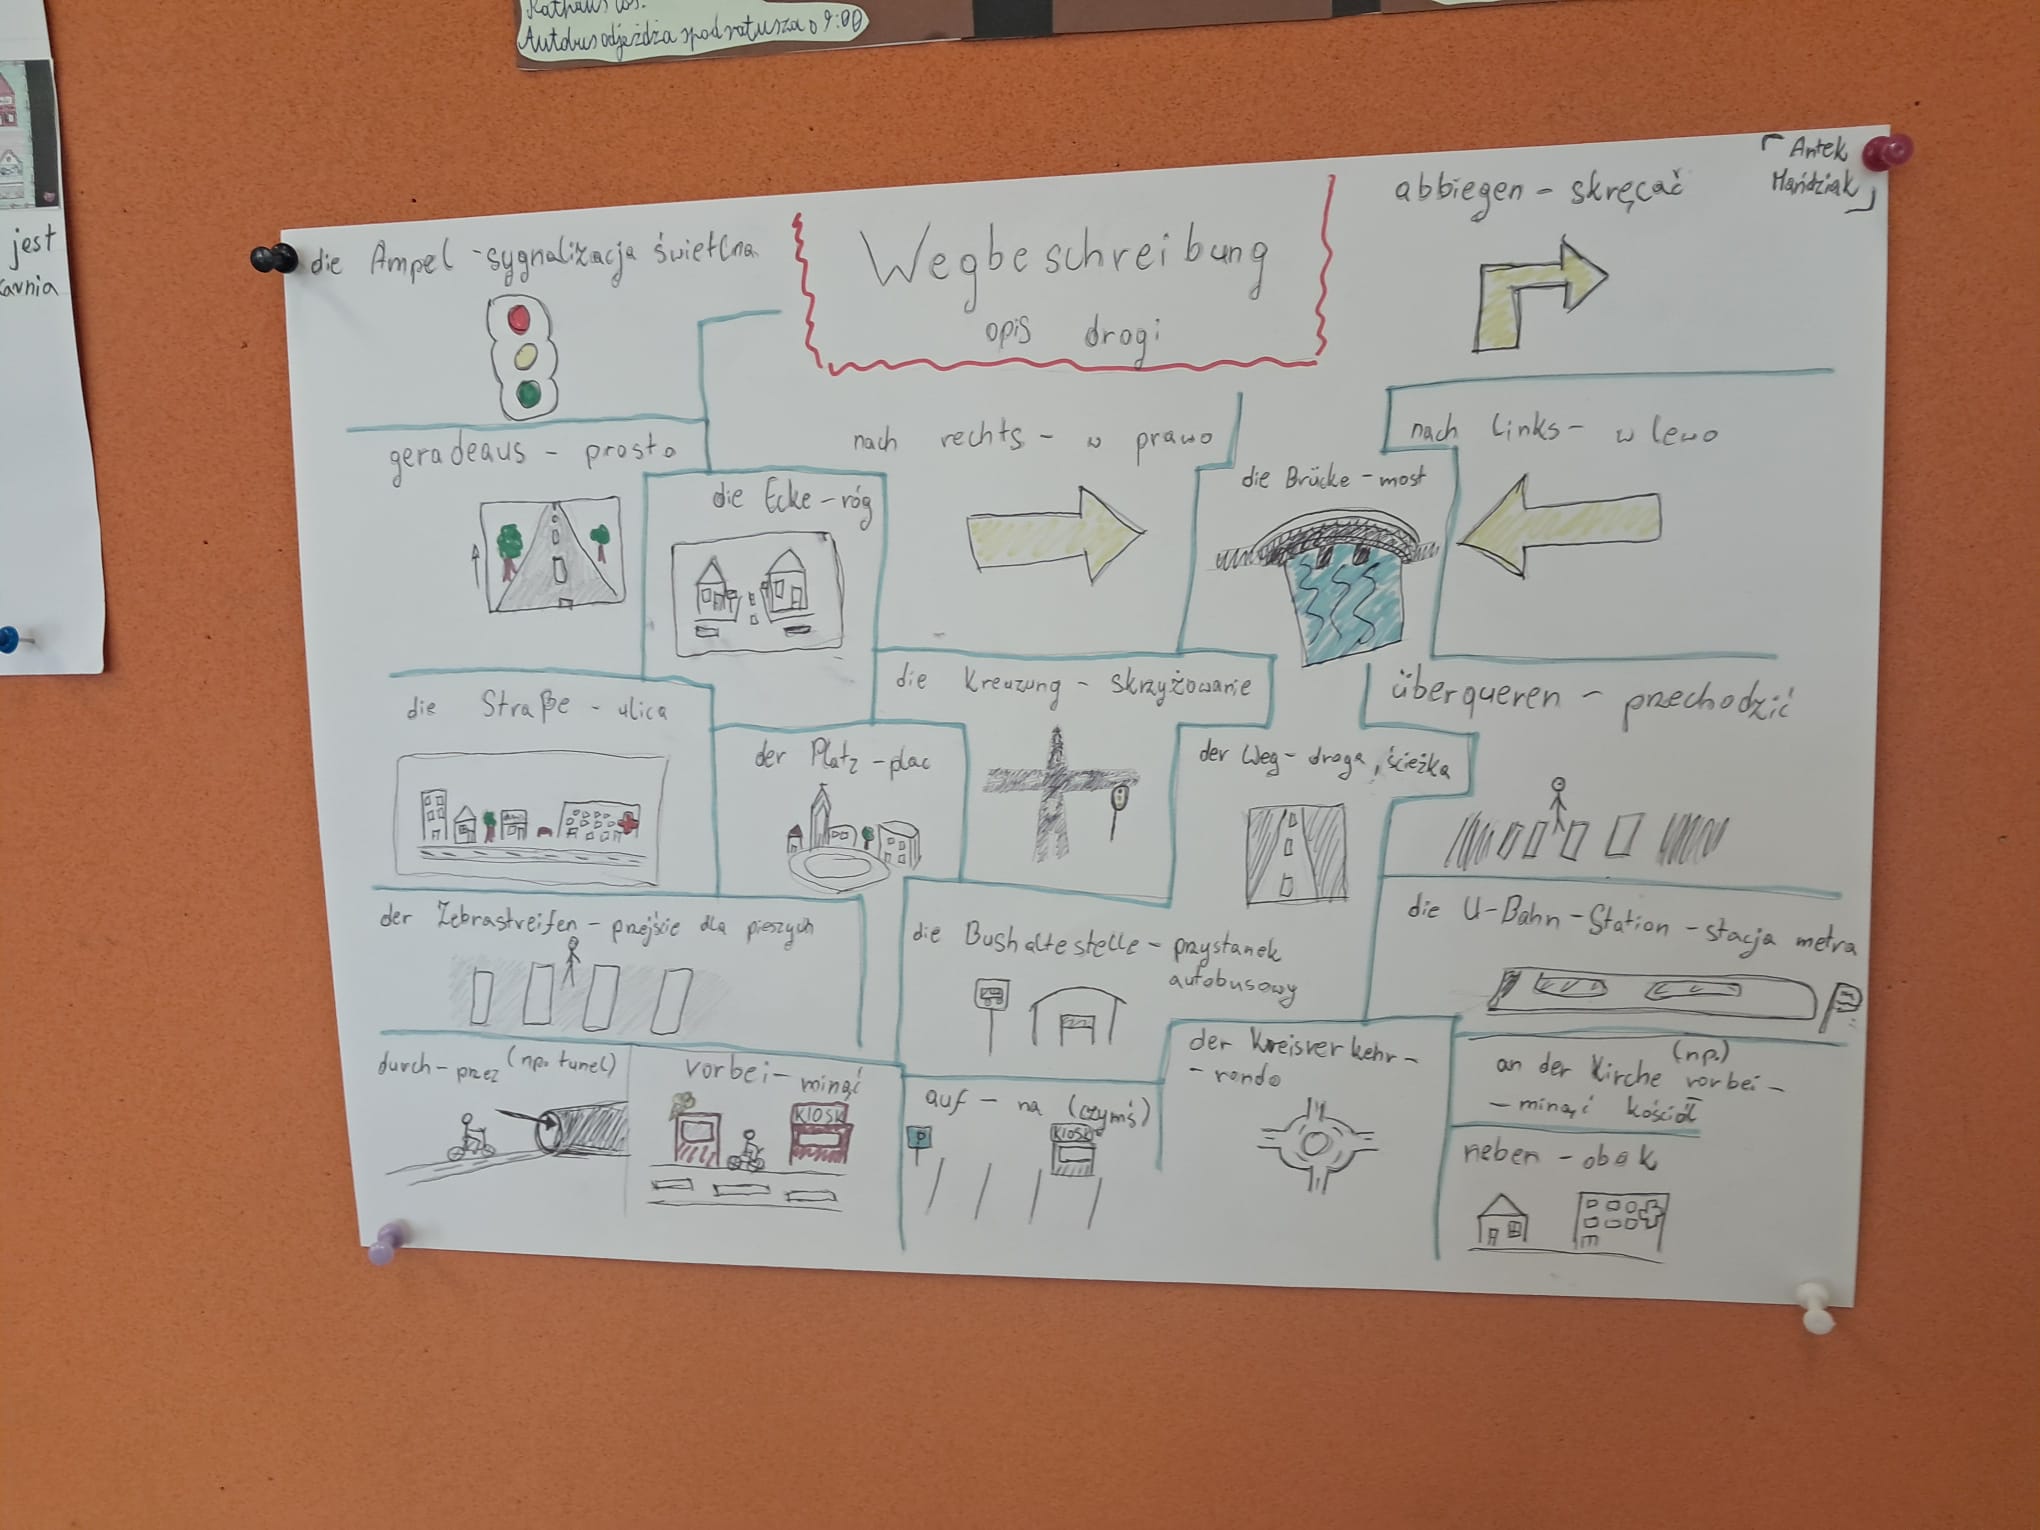 Rathaus los.
Autobus odjeżdża spod ratusza o 9:00
jest
Antek
Mańdziak
Wegbeschreibung
opis drogi
die Ampel - sygnalizacja świetlna
abbiegen - skręcać
geradeaus - prosto
nach rechts - w prawo
nach links - w lewo
die Ecke - róg
die Brücke - most
die Straße - ulica
die Kreuzung - skrzyżowanie
überqueren - przechodzić
der Platz - plac
der Weg - droga, ścieżka
der Zebrastreifen - przejście dla pieszych
die Bushaltestelle - przystanek
autobusowy
die U-Bahn-Station - stacja metra
durch - przez (np. tunel)
vorbei - minąć
KIOSK
auf - na (czymś)
P
KIOSK
der Kreisverkehr -
- rondo
an der Kirche (np.) vorbei -
- minąć kościół
neben - obok